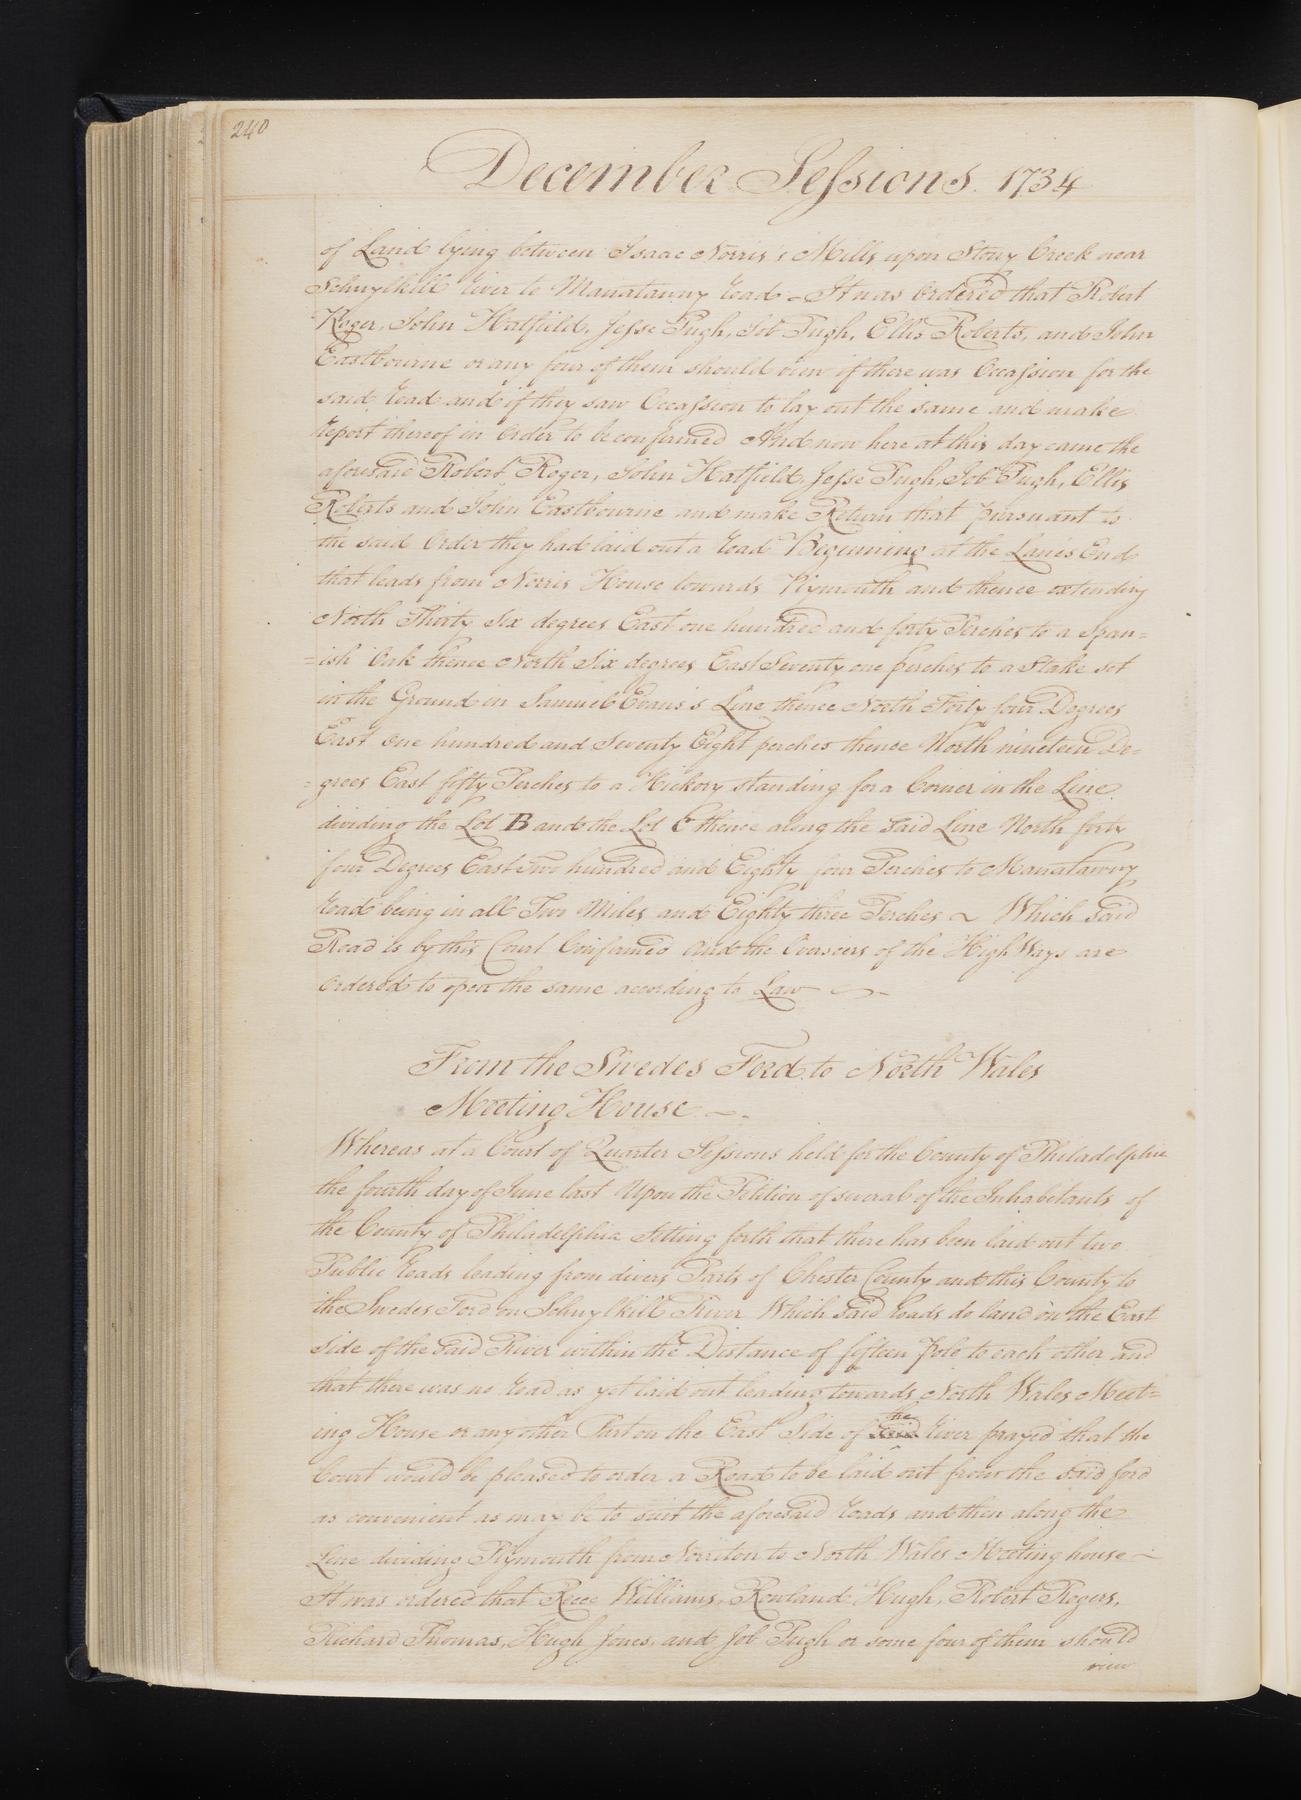 240
December Sessions. 1734
of Land lying between Isaac Norris's Mills upon Stony Creek near
Schuylkill River to Manatawny Road - It was Ordered that Robert
Roger, John Hatfield, Jesse Pugh, Job Pugh, Ellis Roberts, and John
Eastbourne or any four of them should view if there was Occassion for the
said Road and if they saw Occassion to lay out the same and make
Report thereof in Order to be confirmed And now here at this day came the
aforesaid Robert Roger, John Hatfield, Jesse Pugh, Job Pugh, Ellis
Roberts and John Eastbourne and make Return that pursuant to
the said Order they had laid out a Road Beginning at the Lanes End
that leads from Norris House towards Plymouth and thence extending
North Thirty Six degrees East one hundred and forty Perches to a Span=
=ish Oak thence North Six degrees East Seventy one perches to a Stake set
in the Ground in Samuel Evans's Line thence North Forty four Degrees
East one hundred and Seventy Eight perches thence North nineteen De=
=grees East fifty Perches to a Hickory standing for a Corner in the Line
dividing the Lot B and the Lot C thence along the said Line North forty
four Degrees East Two hundred and Eighty four Perches to Manatawny
Road being in all Two Miles and Eighty three Perches ~ Which said
Road is by this Court Confirmed and the Overseers of the High Ways are
Ordered to open the same according to Law
From the Swedes Ford to North Wales
Meeting House
Whereas at a Court of Quarter Sessions held for the County of Philadelphia
the fourth day of June last Upon the Petition of several of the Inhabitants of
the County of Philadelphia Setting forth that there has been laid out two
Public Roads leading from divers Parts of Chester County and this County to
the Swedes Ford on Schuylkill River Which said Roads do land on the East
Side of the said River within the Distance of fifteen Pole to each other and
that there was no Road as yet laid out leading towards North Wales Meet=
ing House or any other Part on the East Side of the River prayed that the
Court would be pleased to order a Road to be laid out from the said ford
as convenient as may be to suit the aforesaid Roads and then along the
Line dividing Plymouth from Norriton to North Wales Meeting house -
It was ordered that Rece Williams, Rowland Hugh, Robert Rogers,
Richard Thomas, Hugh Jones, and Job Pugh or some four of them should
view